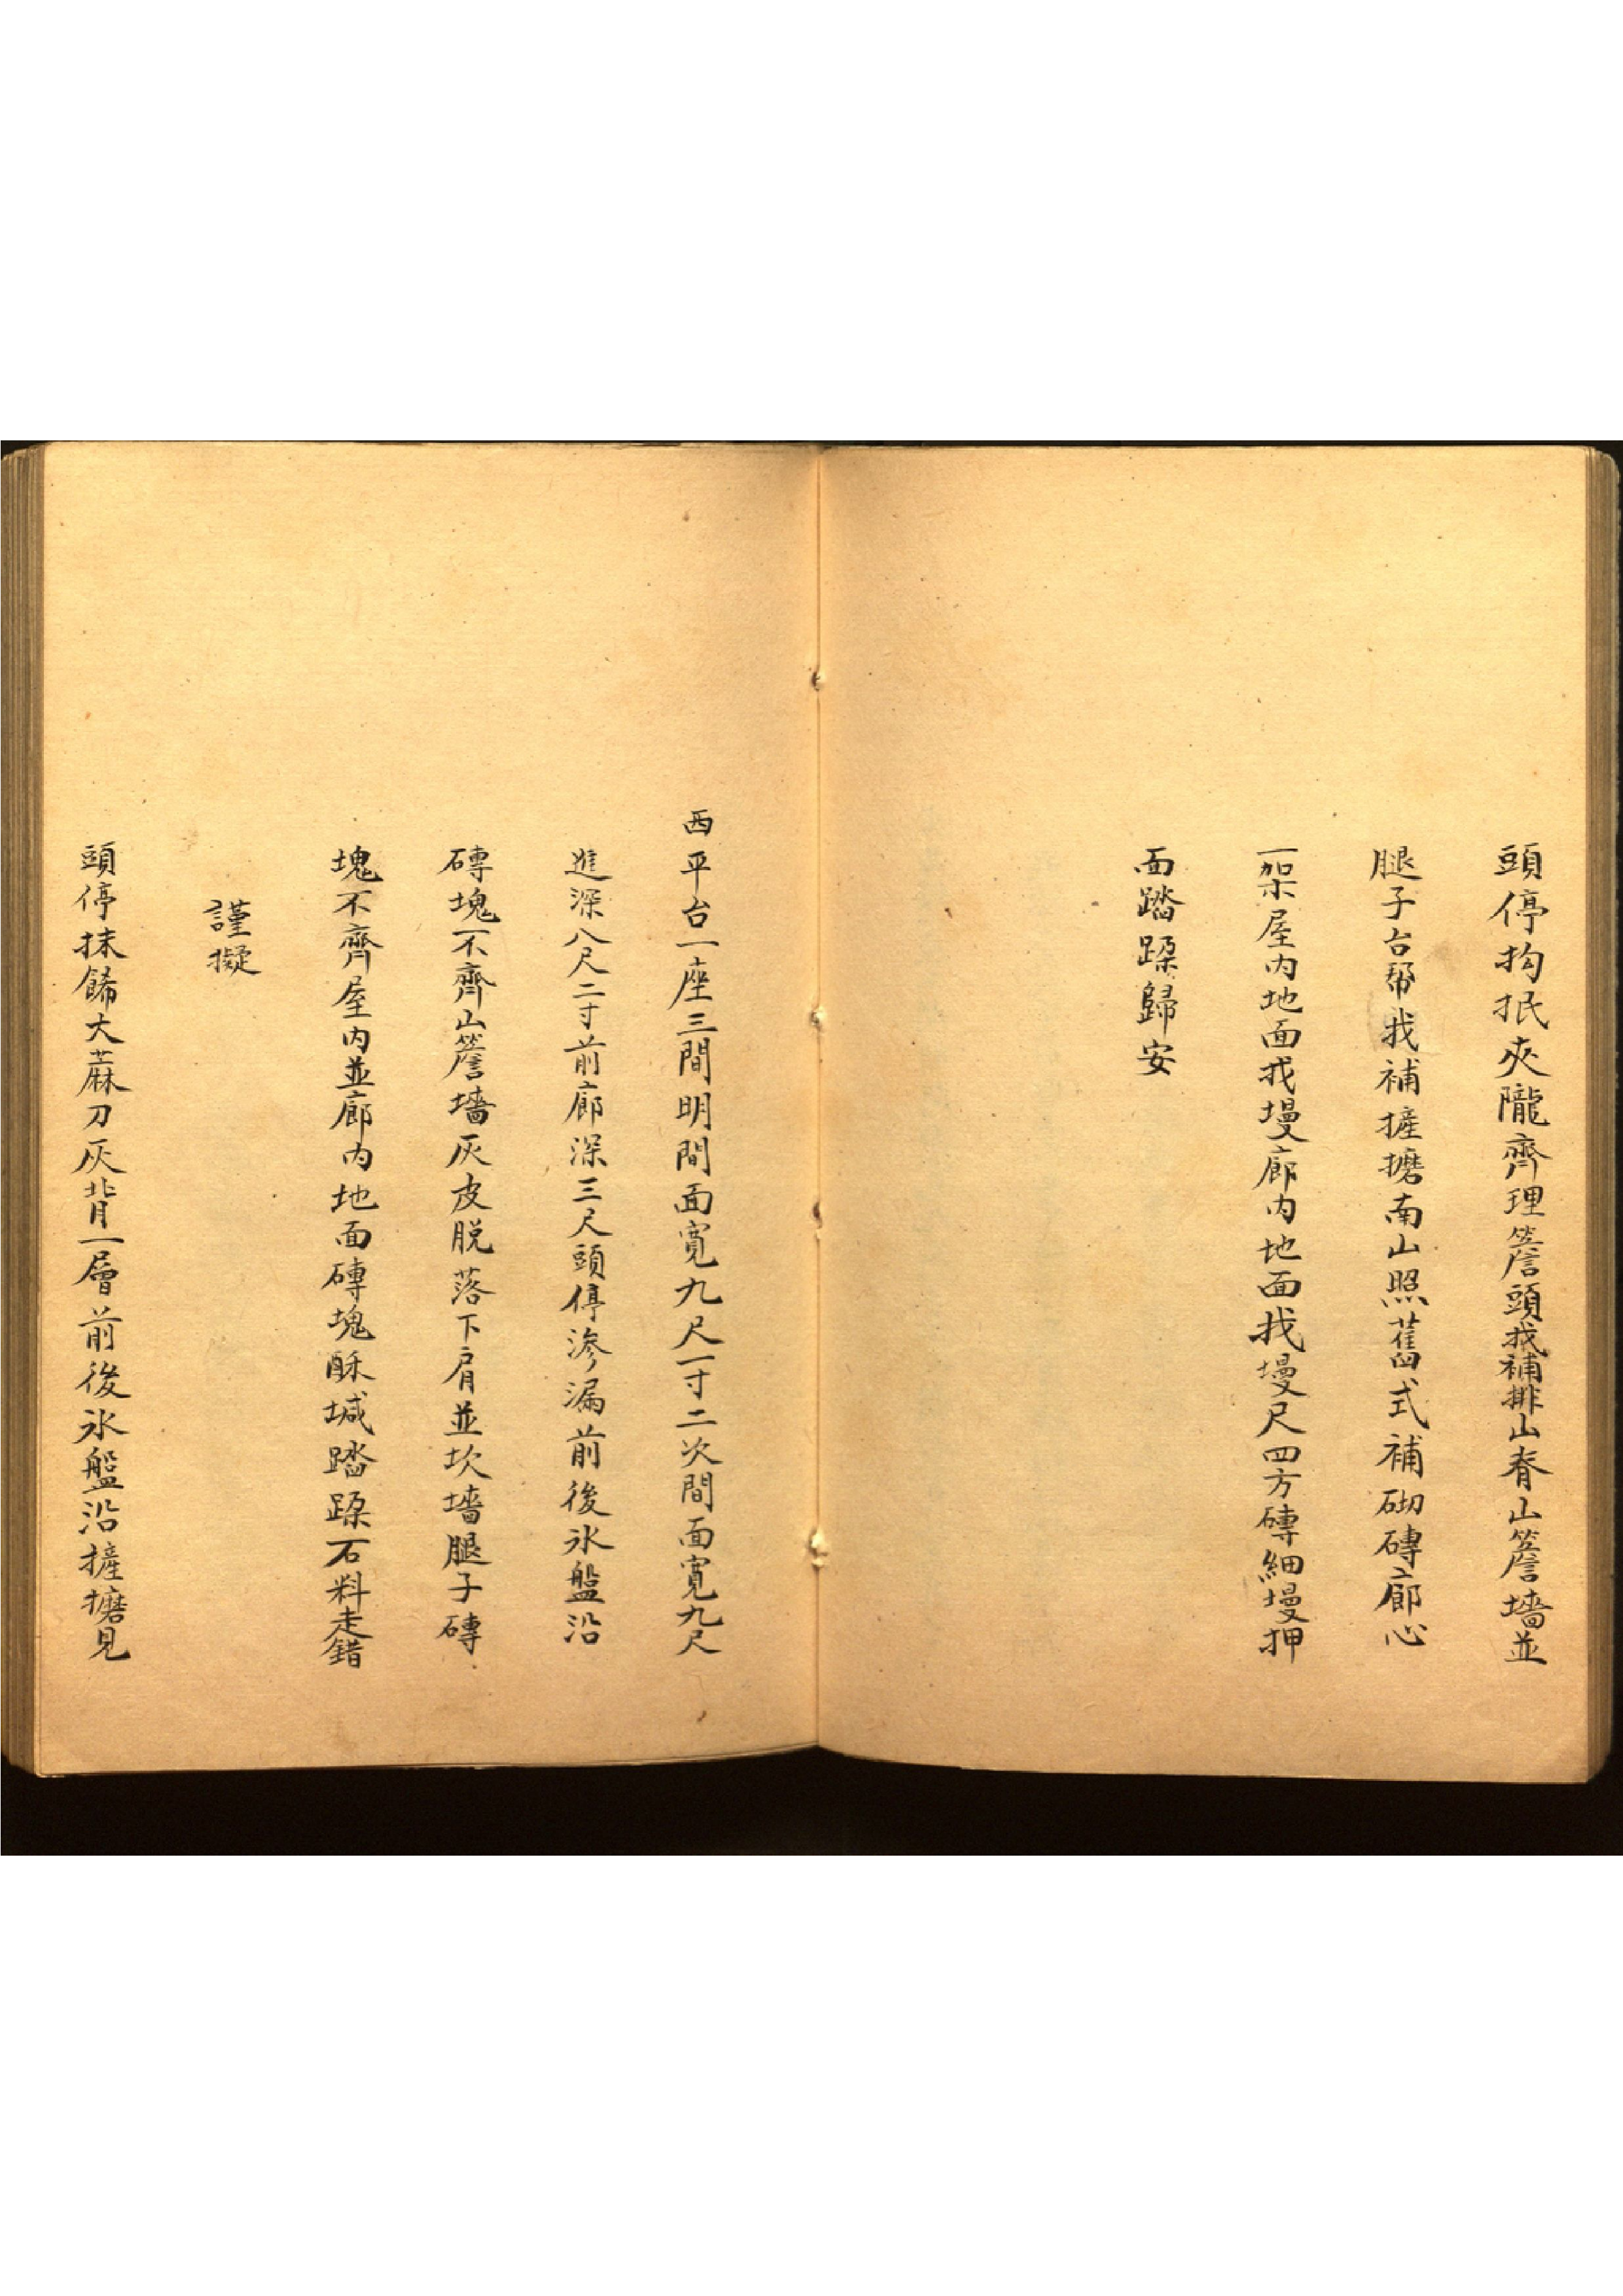 頭停抅抿夾隴齊理簷頭找補排山脊山簷墻並
腿子台幫找補摌擵南山照舊式補砌磚廊心
一架屋内地面找墁廊内地面找墁尺四方磚細墁押
面踏跺歸安
西平台一座三間明間面寬九尺一寸二次間面寬九尺
進深八尺二寸前廊深三尺頭停滲漏前後氷盤沿
磚塊不齊山簷墻灰皮脱落下肩並坎墻腿子磚
塊不齊屋内並廊内地面磚塊酥堿踏跺石料走錯
謹擬
頭停抹餙大蔴刀灰背一層前後氷盤沿摌擵見